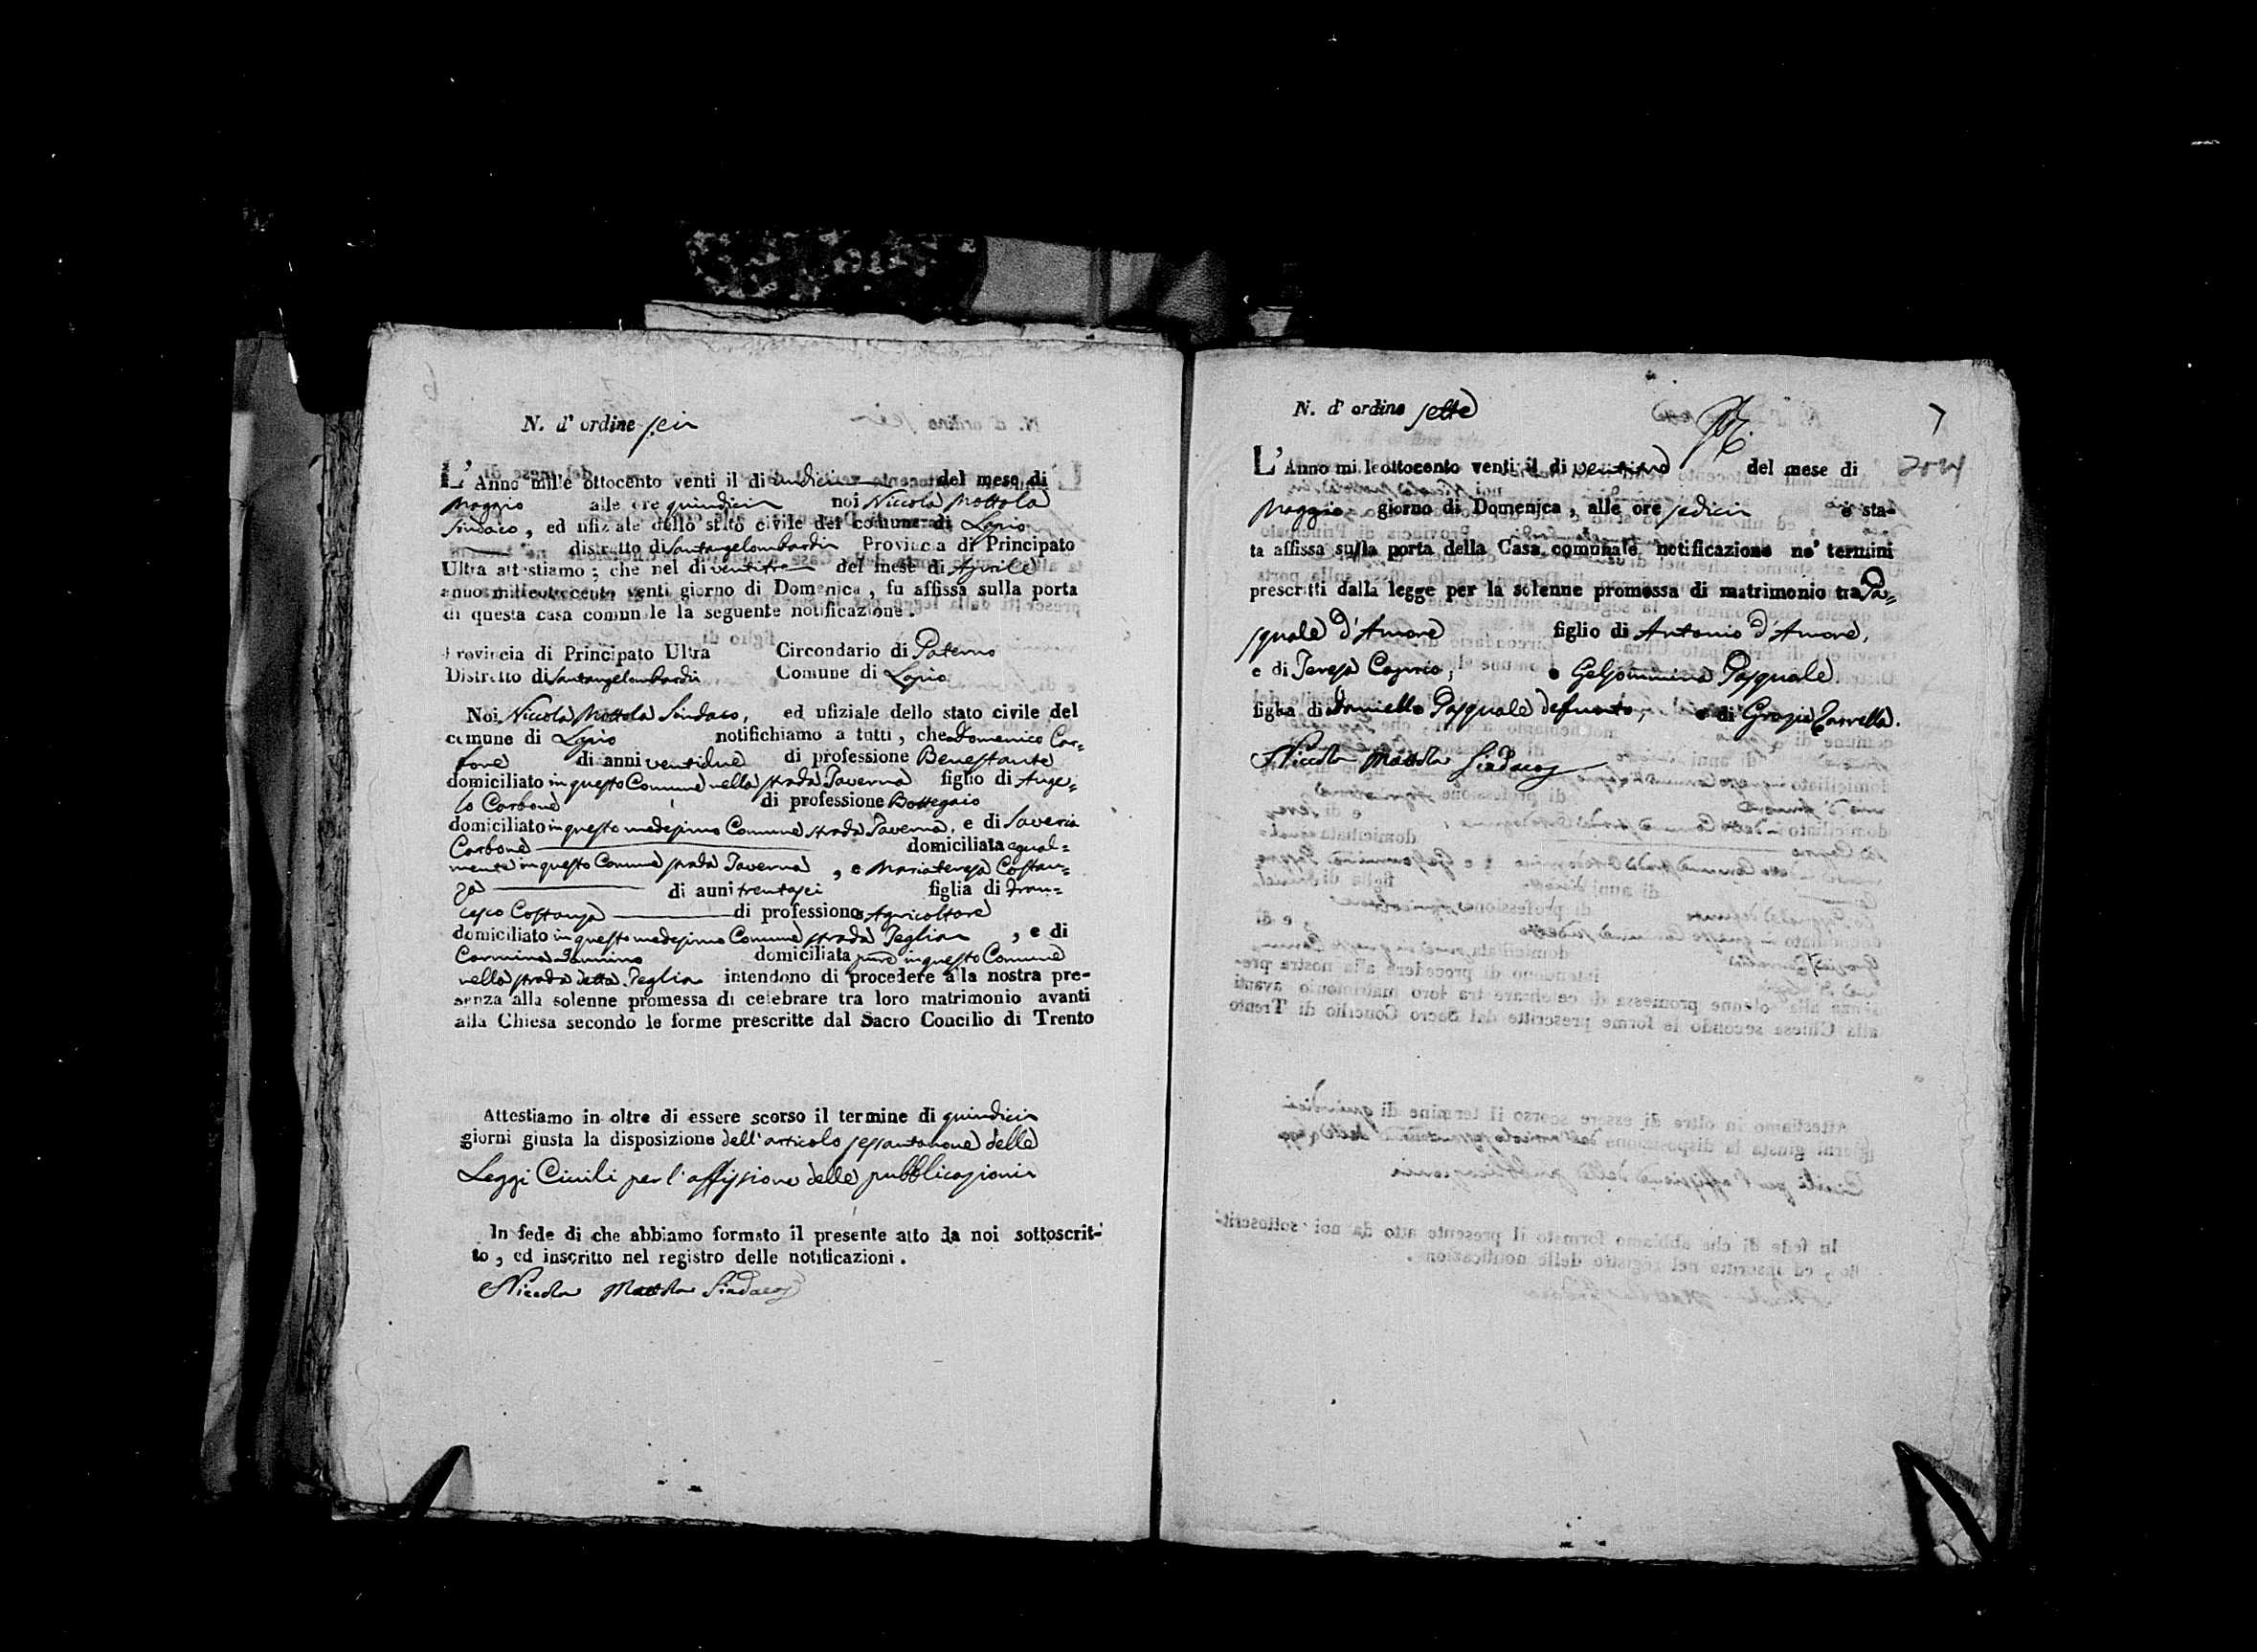 N. d' ordine sei
L' Anno mille ottocento venti il di undici del mese di
Maggio alle ore quindici noi Niccola Mottola
Sindaco, ed ufiziale dello stato civile del comune di Lapio
distretto di Santangelombardi Provincia di Principato
Ultra attestiamo ; che nel di ventitre del mese di Aprile
anno milleottocento venti giorno di Domenica , fu affissa sulla porta
di questa casa comunale la seguente notificazione .
Provincia di Principato Ultra Circondario di Paterno
Distretto di Santangelombardi Comune di Lapio
Noi Niccola Mottola Sindaco, ed ufiziale dello stato civile del
comune di Lapio notifichiamo a tutti , che Domenico Car=
bone di anni ventidue di professione Benestante
domiciliato in questo Comune nella strada Taverna figlio di Ange=
lo Carbone di professione Bottegaio
domiciliato in questo medesimo Comune strada Taverna, e di Saveria
Carbone domiciliata egual=
mente in questo Comune strada Taverna , e Mariateresa Costan=
za di anni trentasei figlia di Fran=
cesco Costanza di professione Agricoltore
domiciliato in questo medesimo Comune strada Teglia , e di
Carmina Iannino domiciliata pure in questo Comune
nella strada detta Teglia intendono di procedere alla nostra pre-
senza alla solenne promessa di celebrare tra loro matrimonio avanti
alla Chiesa secondo le forme prescritte dal Sacro Concilio di Trento
Attestiamo in oltre di essere scorso il termine di quindici
giorni giusta la disposizione dell'articolo sessantanove delle
Leggi Civili per l'affissione delle pubblicazioni
In fede di che abbiamo formato il presente atto da noi sottoscrit-
to , ed inscritto nel registro delle notificazioni .
Niccola Mottola Sindaco
N. d' ordine sette
7
L' Anno mille ottocento venti il di ventuno del mese di
Maggio giorno di Domenica , alle ore sedici è sta-
ta affissa sulla porta della Casa comunale notificazione ne' termini
prescritti dalla legge per la solenne promessa di matrimonio tra Pa=
squale d'Amore figlio di Antonio d'Amore,
e di Teresa Caprio; e Gelsommina Pasquale
figlia di Daniello Pasquale defunto, e di Grazia Zarrella.
Niccola Mottola Sindaco